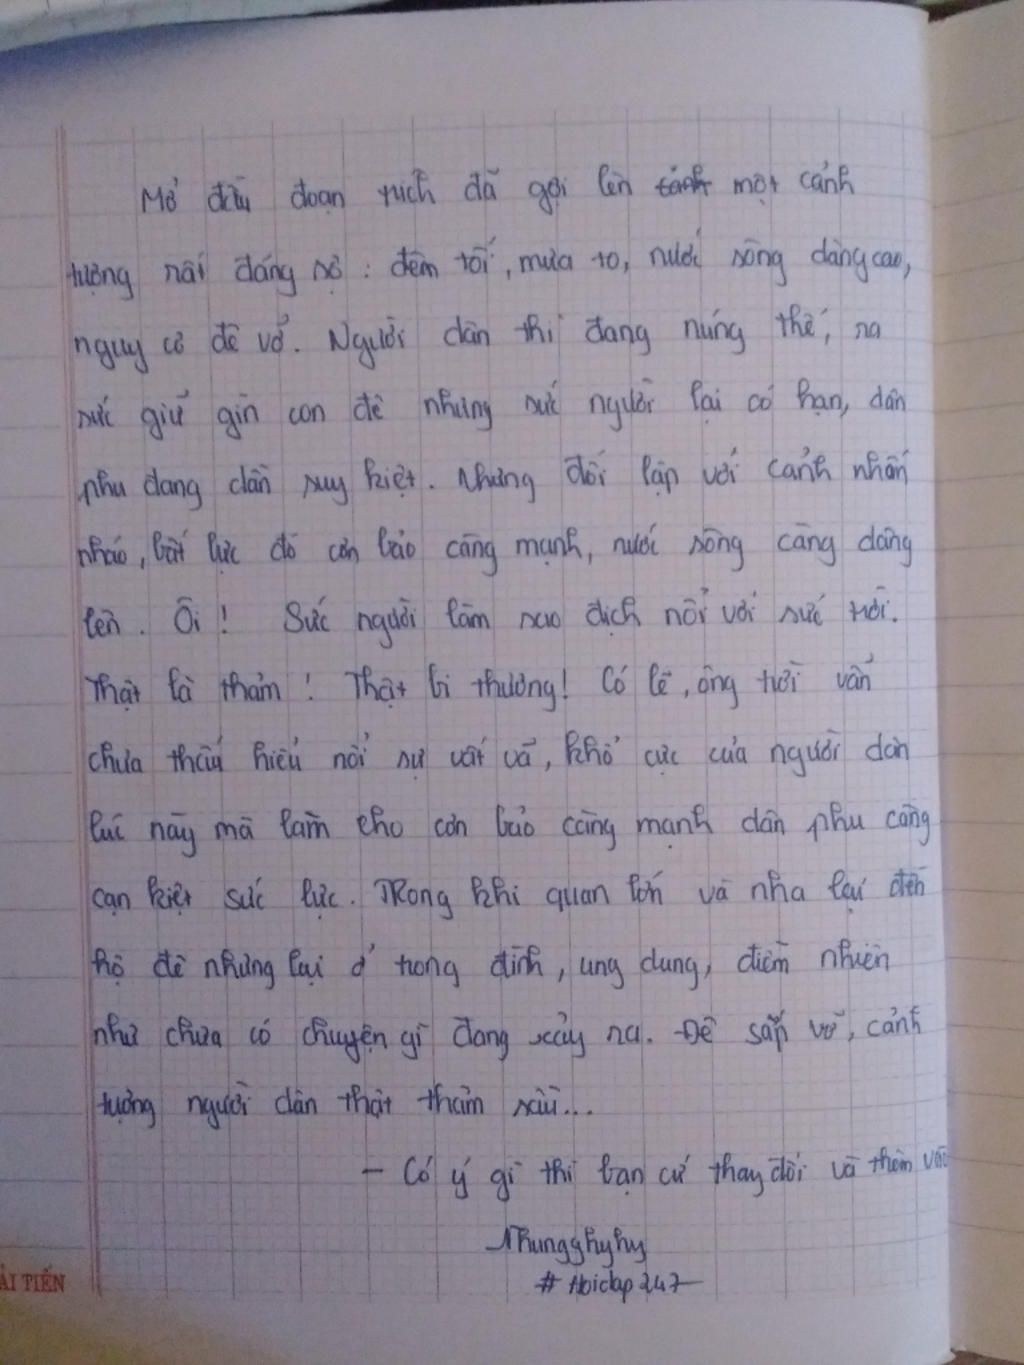 Mở đầu đoạn trích đã gợi lên một cảnh
tượng rất đáng sợ : đêm tối, mưa to, nước sông dâng cao,
nguy cơ đê vỡ. Người dân thì đang núng thế, ra
sức giữ gìn con đê nhưng sức người lại có hạn, dân
phu đang dần suy kiệt. Nhưng đối lập với cảnh nhốn
nháo, bất lực đó cơn bão càng mạnh, nước sông càng dâng
lên. Ôi ! Sức người làm sao địch nổi với sức trời.
Thật là thảm ! Thật bi thương! Có lẽ, ông trời vẫn
chưa thấu hiểu nổi sự vất vả, khổ cực của người dân
lúc này mà làm cho cơn bão càng mạnh dân phu càng
cạn kiệt sức lực. Trong khi quan lớn và nha lại đến
hộ đê nhưng lại ở trong đình, ung dung, điềm nhiên
như chưa có chuyện gì đang xảy ra. Đê sắp vỡ, cảnh
tượng người dân thật thảm sầu...
- Có ý gì thì bạn cứ thay đổi và thêm vào
Nhungghyhy
# Hoidap247
ẢI TIẾN